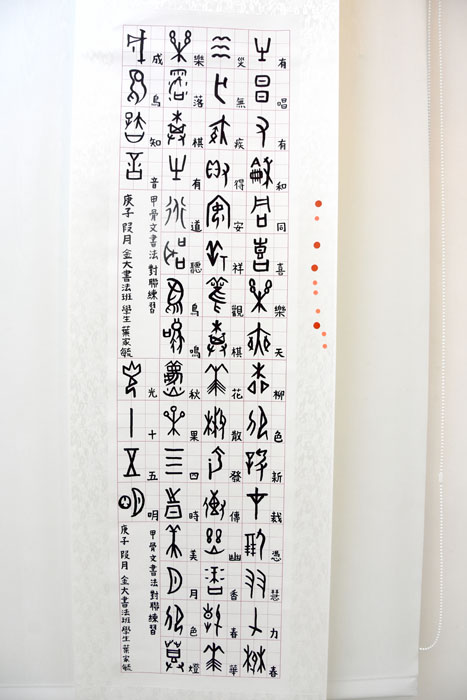 有唱有和同喜樂天
災無疾得安祥觀棋
樂落棋有道聽鳥鳴
成鳥知音
甲骨文書法對聯練習
庚子叚月金大書法班學生葉家毓
柳色新裁憑慧力春
花散發傳幽香春華
秋果四時美月色燈
光十五明
甲骨文書法對聯練習
庚子叚月金大書法班學生葉家毓